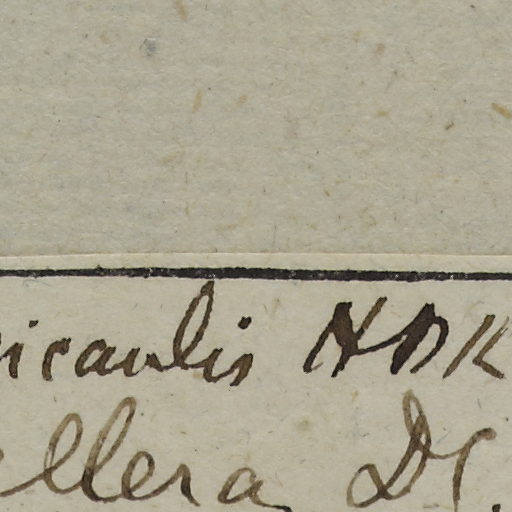 icaulis HBK
llera DC.